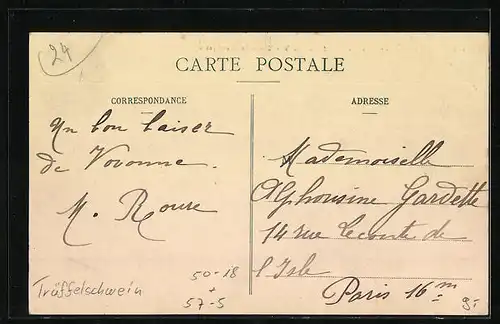 24
CARTE POSTALE
CORRESPONDANCE
ADRESSE
Un bon baiser
de Vovonne.
M. Roure
Mademoiselle
Alphonsine Gardette
14 rue Leconte de
l'Isle
Paris 16m
Trüffelschwein
50-18
+
57-5
9.-